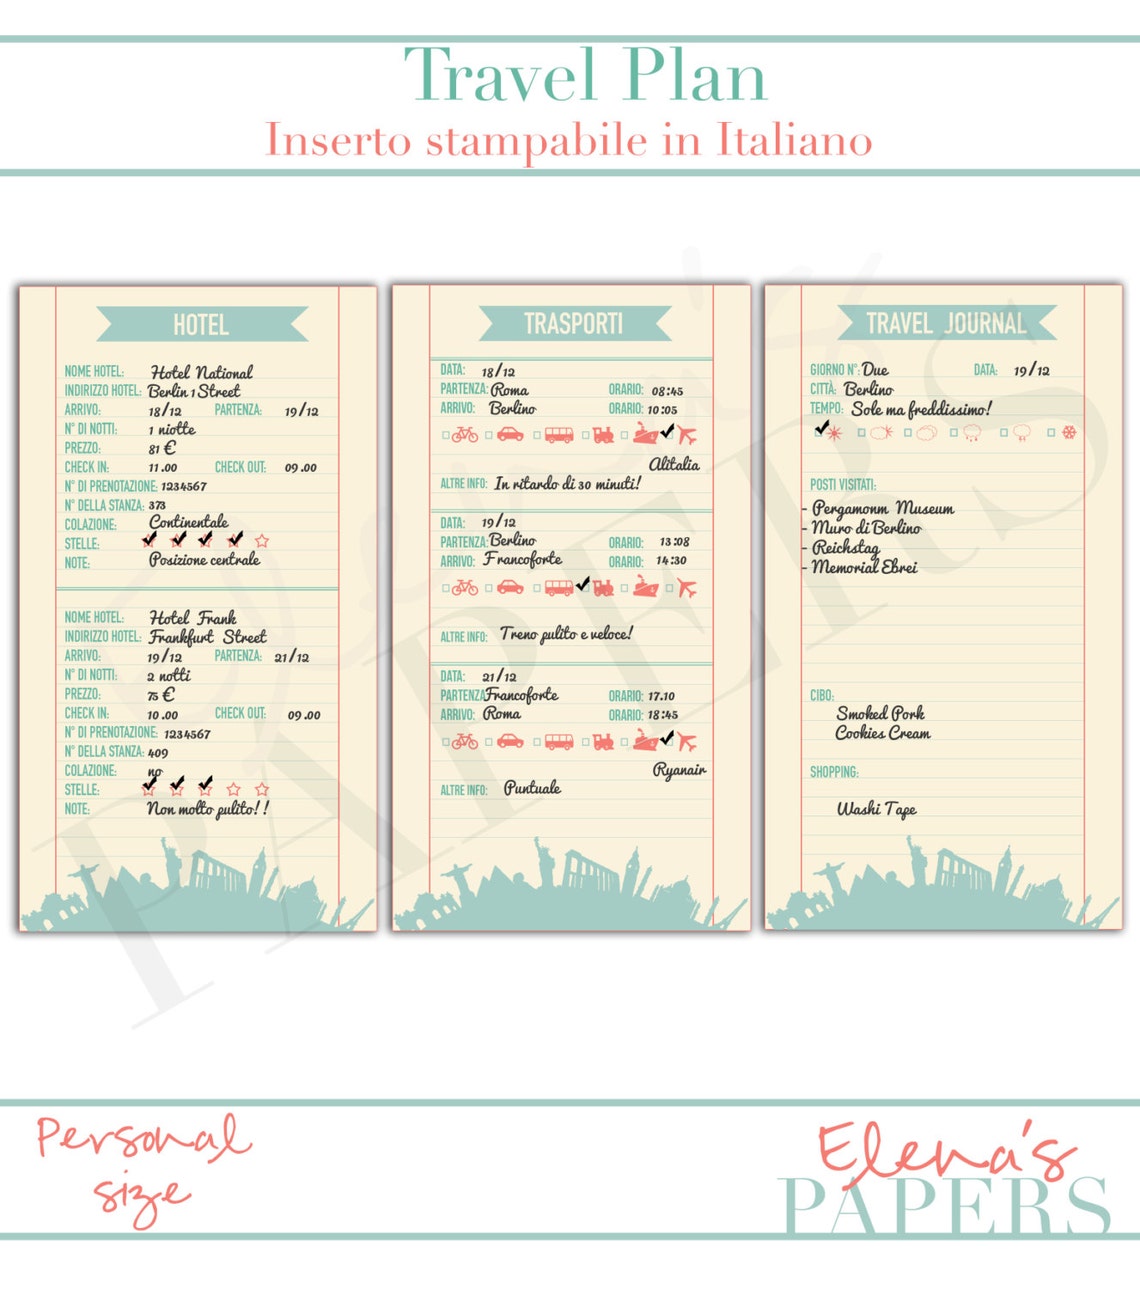 Travel Plan
Inserto stampabile in Italiano
HOTEL
NOME HOTEL: Hotel National
INDIRIZZO HOTEL: Berlin 1 Street
ARRIVO: 18/12 PARTENZA: 19/12
N° DI NOTTI: 1 niotte
PREZZO: 81 €
CHECK IN: 11.00 CHECK OUT: 09.00
N° DI PRENOTAZIONE: 1234567
N° DELLA STANZA: 373
COLAZIONE: Continentale
STELLE:
NOTE: Posizione centrale
NOME HOTEL: Hotel Frank
INDIRIZZO HOTEL: Frankfurt Street
ARRIVO: 19/12 PARTENZA: 21/12
N° DI NOTTI: 2 notti
PREZZO: 75 €
CHECK IN: 10.00 CHECK OUT: 09.00
N° DI PRENOTAZIONE: 1234567
N° DELLA STANZA: 409
COLAZIONE: no
STELLE:
NOTE: Non molto pulito!!
TRASPORTI
DATA: 18/12
PARTENZA: Roma ORARIO: 08:45
ARRIVO: Berlino ORARIO: 10:05
Alitalia
ALTRE INFO: In ritardo di 30 minuti!
DATA: 19/12
PARTENZA: Berlino ORARIO: 13:08
ARRIVO: Francoforte ORARIO: 14:30
ALTRE INFO: Treno pulito e veloce!
DATA: 21/12
PARTENZA Francoforte ORARIO: 17.10
ARRIVO: Roma ORARIO: 18:45
Ryanair
ALTRE INFO: Puntuale
TRAVEL JOURNAL
GIORNO N°: Due DATA: 19/12
CITTÀ: Berlino
TEMPO: Sole ma freddissimo!
POSTI VISITATI:
- Pergamonm Museum
- Muro di Berlino
- Reichstag
- Memorial Ebrei
CIBO:
Smoked Pork
Cookies Cream
SHOPPING:
Washi Tape
PAPERS
Personal
size
Elena's
PAPERS